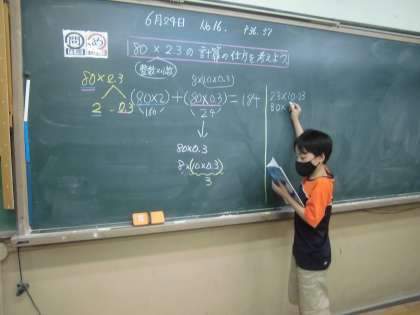 6月29日 No16. P36.37
問 め
80×2.3の計算の仕方を考えよう
整数×小数
8×(10×0.3)
80×2.3
2 0.3
(80×2)+(80×0.3)=184
160 24
↓
80×0.3
8×(10×0.3)
3
23×10
80×